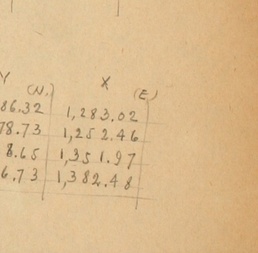 Y (N.) X (E)
86.32 1,283.02
78.73 1,252.46
8.65 1,351.97
6.73 1,382.48